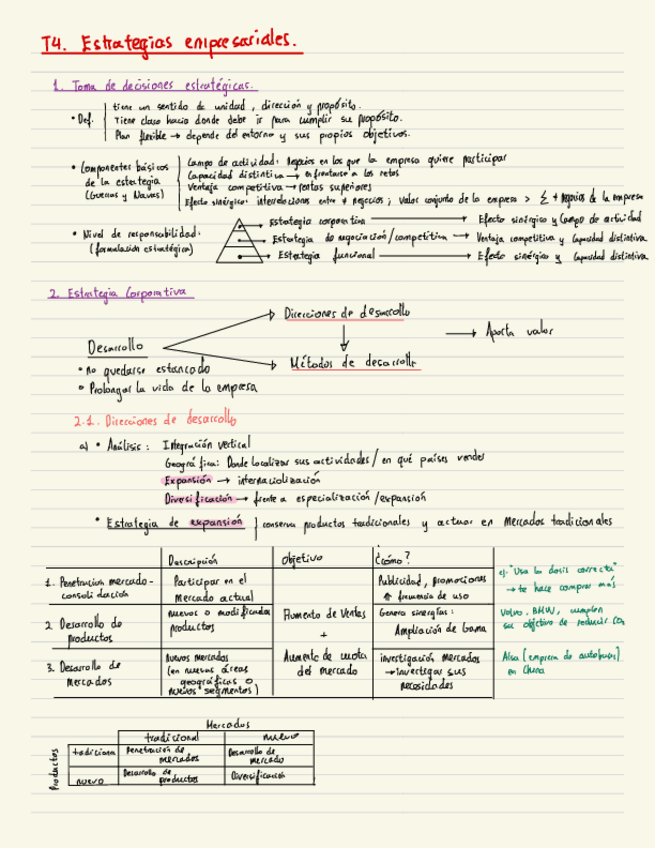 T4. Estrategias empresariales.
1. Toma de decisiones estratégicas.
• Def. tiene un sentido de unidad, dirección y propósito.
Tiene claro hacia donde debe ir para cumplir su propósito.
Plan flexible → depende del entorno y sus propios objetivos.
• Componentes básicos de la estrategia (Guerras y Navas)
Campo de actividad: Negocios en los que la empresa quiere participar
Capacidad distintiva → enfrentarse a los retos
Ventaja competitiva → rentas superiores
Efecto sinérgico: interrelaciones entre ≠ negocios; valor conjunto de la empresa > Σ ≠ negocios de la empresa
• Nivel de responsabilidad: (formulación estratégica)
→ Estrategia corporativa → Efecto sinérgico y Campo de actividad
→ Estrategia de negociación/competitiva → Ventaja competitiva y Capacidad distintiva
→ Estrategia funcional → Efecto sinérgico y Capacidad distintiva
2. Estrategia Corporativa
Direcciones de desarrollo
→ Aporta valor
Desarrollo
Métodos de desarrollo
• no quedarse estancado
• Prolongar la vida de la empresa
2.1. Direcciones de desarrollo
a) • Análisis: Integración vertical
Geográfica: Donde localizar sus actividades / en qué países vender
Expansión → internacialización
Diversificación → frente a especialización/expansión
• Estrategia de expansión } conserva productos tradicionales y actuar en Mercados tradicionales
Descripción
Objetivo
¿cómo?
1. Penetracion mercado - consolidación
Participar en el mercado actual
Publicidad, promociones
⇑ frecuencia de uso
"Usa la dosis correcta"
→ te hace comprar más
2. Desarrollo de productos
nuevos o modificados productos
Aumento de Ventas
+
Aumento de cuota del mercado
Genera sinergias:
Ampliación de Gama
Volvo, BMW, cumplen su objetivo de reducir CO₂
3. Desarrollo de mercados
Nuevos mercados
(en nuevas áreas geográficas o nuevos segmentos)
investigación mercados
→ investigar sus necesidades
Alsa (empresa de autobuses) en China
Mercados
tradicional
nuevo
Productos
tradiciona
Penetración de mercados
Desarrollo de mercado
nuevo
Desarrollo de productos
Diversificación